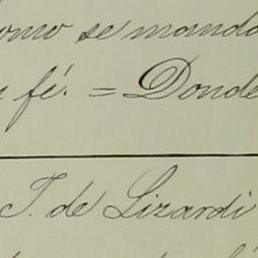 como se manda
fé. = Donde
J. de Lizardi